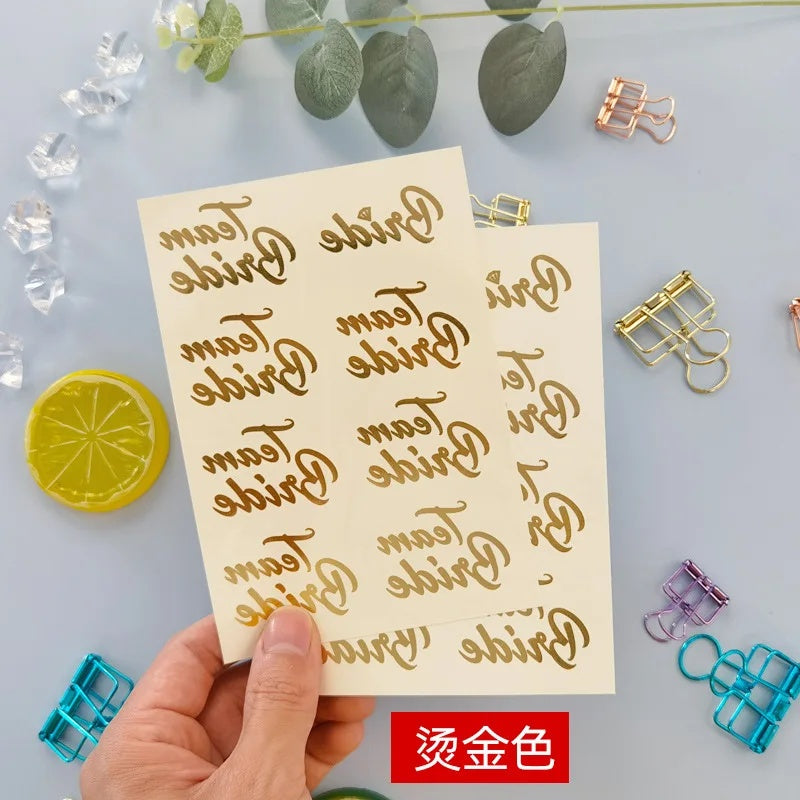 Team
Bride
Bride
Team
Bride
Team
Bride
Team
Bride
Team
Bride
Team
Bride
Team
Bride
Bride
烫金色